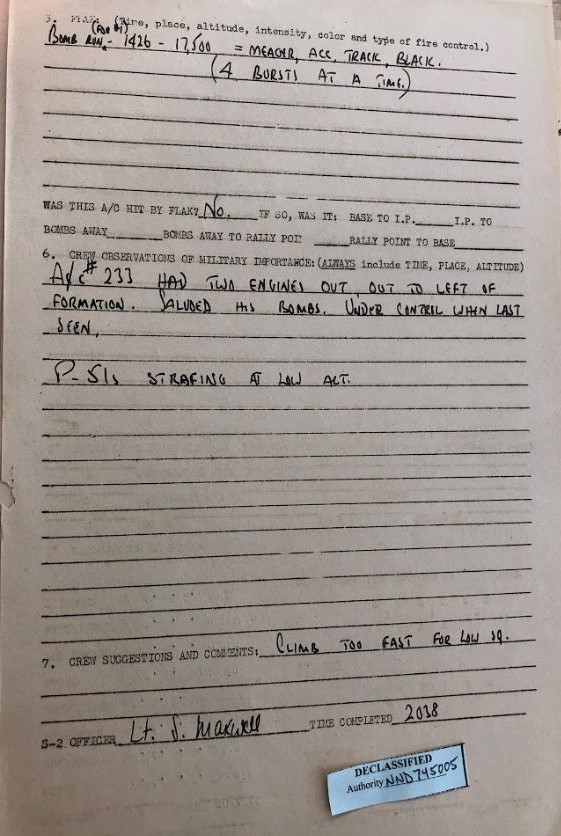 5. FLAK: (Time, place, altitude, intensity, color and type of fire control.)
(RUN #1)
BOMB RUN - 1426 - 17,500 = MEAGER, ACC, TRACK, BLACK.
(4 BURSTS AT A TIME.)
WAS THIS A/C HIT BY FLAK? No. IF SO, WAS IT: BASE TO I.P.______I.P. TO
BOMBS AWAY________BOMBS AWAY TO RALLY POI _____RALLY POINT TO BASE________
6. CREW OBSERVATIONS OF MILITARY IMPORTANCE: (ALWAYS include TIME, PLACE, ALTITUDE)
A/C # 233 HAD TWO ENGINES OUT, OUT TO LEFT OF
FORMATION. SALVOED HIS BOMBS. UNDER CONTROL WHEN LAST
SEEN.
P-51s STRAFING AT LOW ALT.
7. CREW SUGGESTIONS AND COMMENTS: CLIMB TOO FAST FOR LOW SQ.
S-2 OFFICER Lt. S. Maxwell TIME COMPLETED 2038
DECLASSIFIED
Authority NND 745005